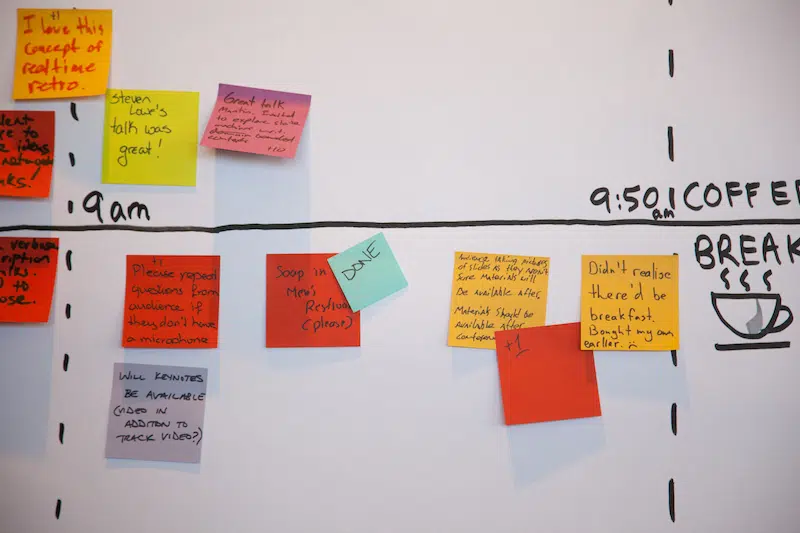 +1
I love this
concept of
realtime
retro.
Steven
Lowe's
talk was
great!
Great talk
Martin, I
to explore state
machine
+10
9am
9:50
am
COFFEE
BREAK
Please repeat
questions from
audience if
they don't have
a microphone
Soap in
Men's
Restroom
(please)
DONE
Audience taking pictures
of slides as they aren't
sure materials will
Be available after.
Materials should be
available after
+1
Didn't realise
there'd be
breakfast.
Bought my own
earlier. :(
WILL KEYNOTES
BE AVAILABLE
(VIDEO IN
ADDITON TO
TRACK VIDEO?)